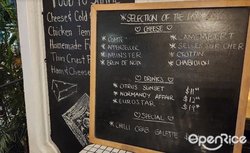 FOOD TO SHARE
Cheese & Cold
Chicken Ten
Homemade F
Ham & Cheese
SELECTION OF THE DAY
CHEESE
* COMTE
* APPENZELLER
* MUNSTER
* BRIN DE NOIX
* CAMEMBERT
* SELLES SUR CHER
* CROTTIN
* CHABICHOU
DRINKS
* CITRUS SUNSET
* NORMANDY AFFAIR
* EUROSTAR
SPECIAL
* CHILLI CRAB GALETTE
OpenRice